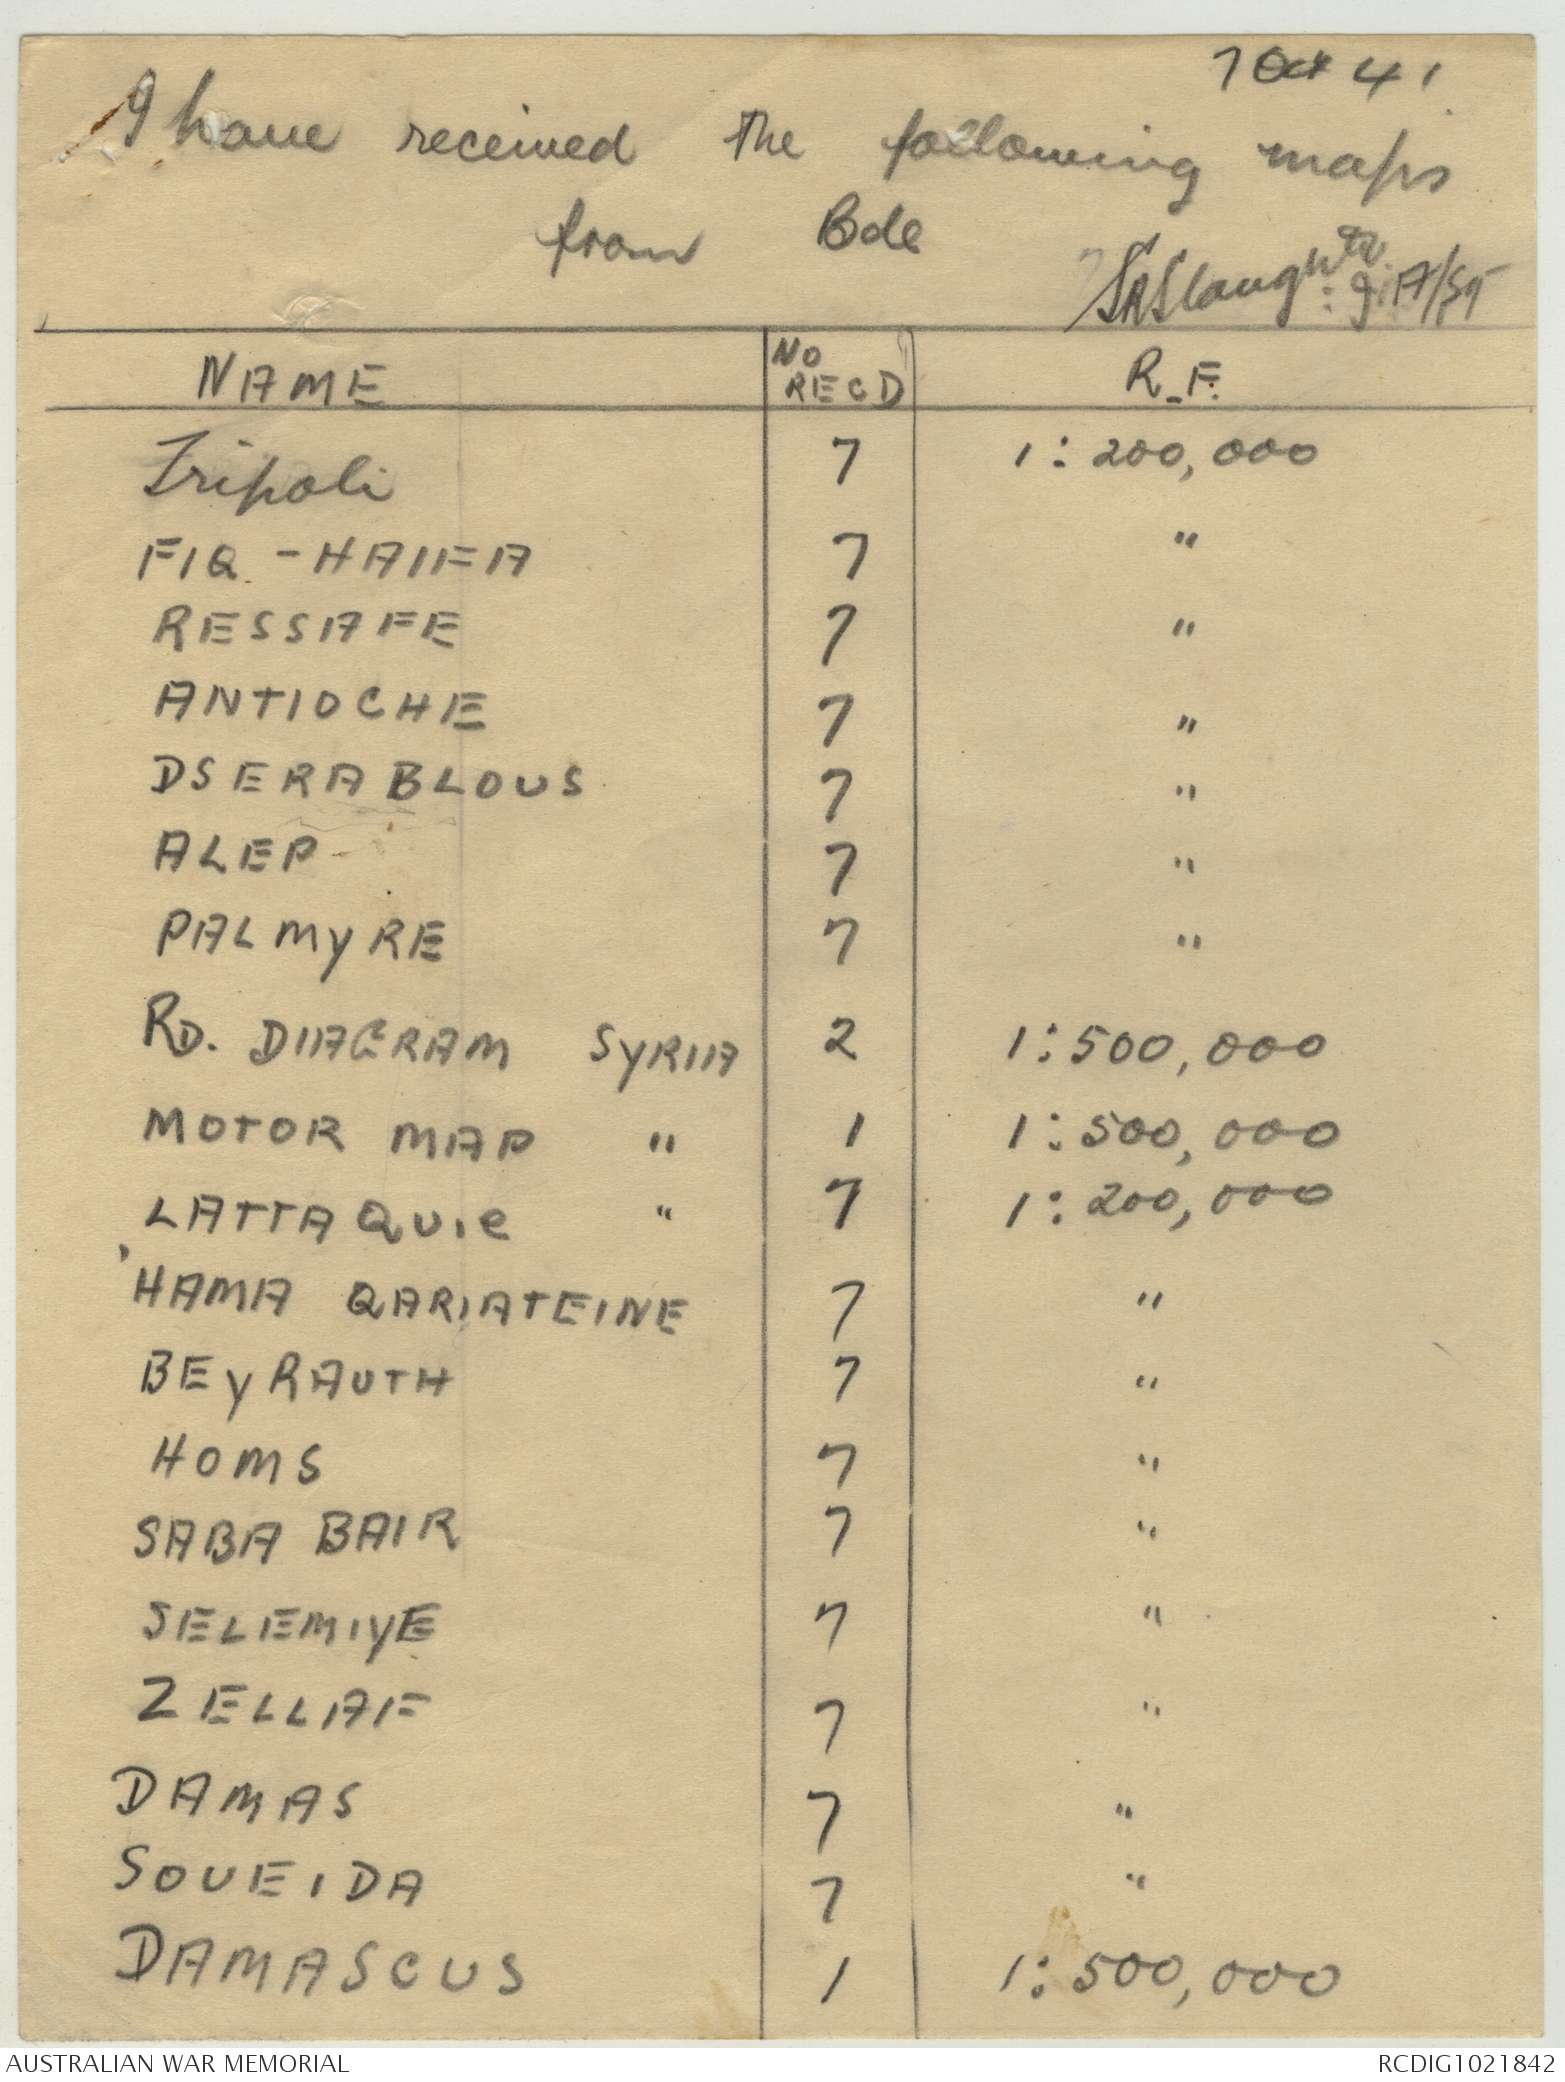 7 Oct 41
I have received the following maps
from Bde
SASlaughter
NAME NO RECD R.F.
Tripoli 7 1:200,000
FIQ - HAIFA 7 "
RESSAFE 7 "
ANTIOCHE 7 "
DSERABLOUS 7 "
ALEP 7 "
PALMYRE 7 "
RD. DIAGRAM SYRIA 2 1:500,000
MOTOR MAP " 1 1:500,000
LATTAQUIE " 7 1:200,000
HAMA QARIATEINE 7 "
BEYRAUTH 7 "
HOMS 7 "
SABA BAIR 7 "
SELEMIYE 7 "
ZELLAF 7 "
DAMAS 7 "
SOUEIDA 7 "
DAMASCUS 1 1:500,000
AUSTRALIAN WAR MEMORIAL RCDIG1021842